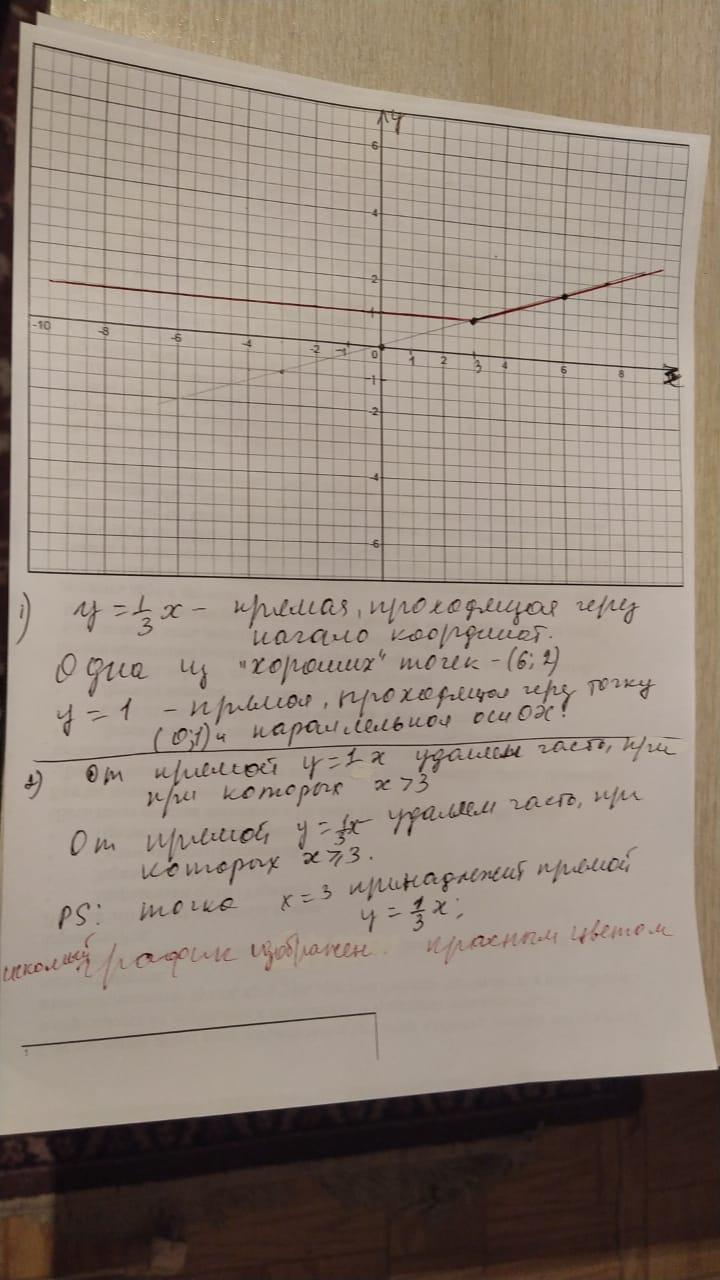 у
6
4
2
1
-10 -8 -6 -4 -2 -1 0 1 2 3 4 6 8
-1
-2
-4
-6
1) y = 1/3 x - прямая, проходящая через
начало координат.
Одна из "хороших" точек - (6; 2)
y = 1 - прямая, проходящая через точку
(0;1) и параллельная оси ОХ.
2) От прямой y = 1 x удаляем часть, при
при которых x > 3
От прямой y = 1/3 x удаляем часть, при
которых x ⩾ 3.
PS: точка x = 3 принадлежит прямой
y = 1/3 x;
искомый график изображен красным цветом